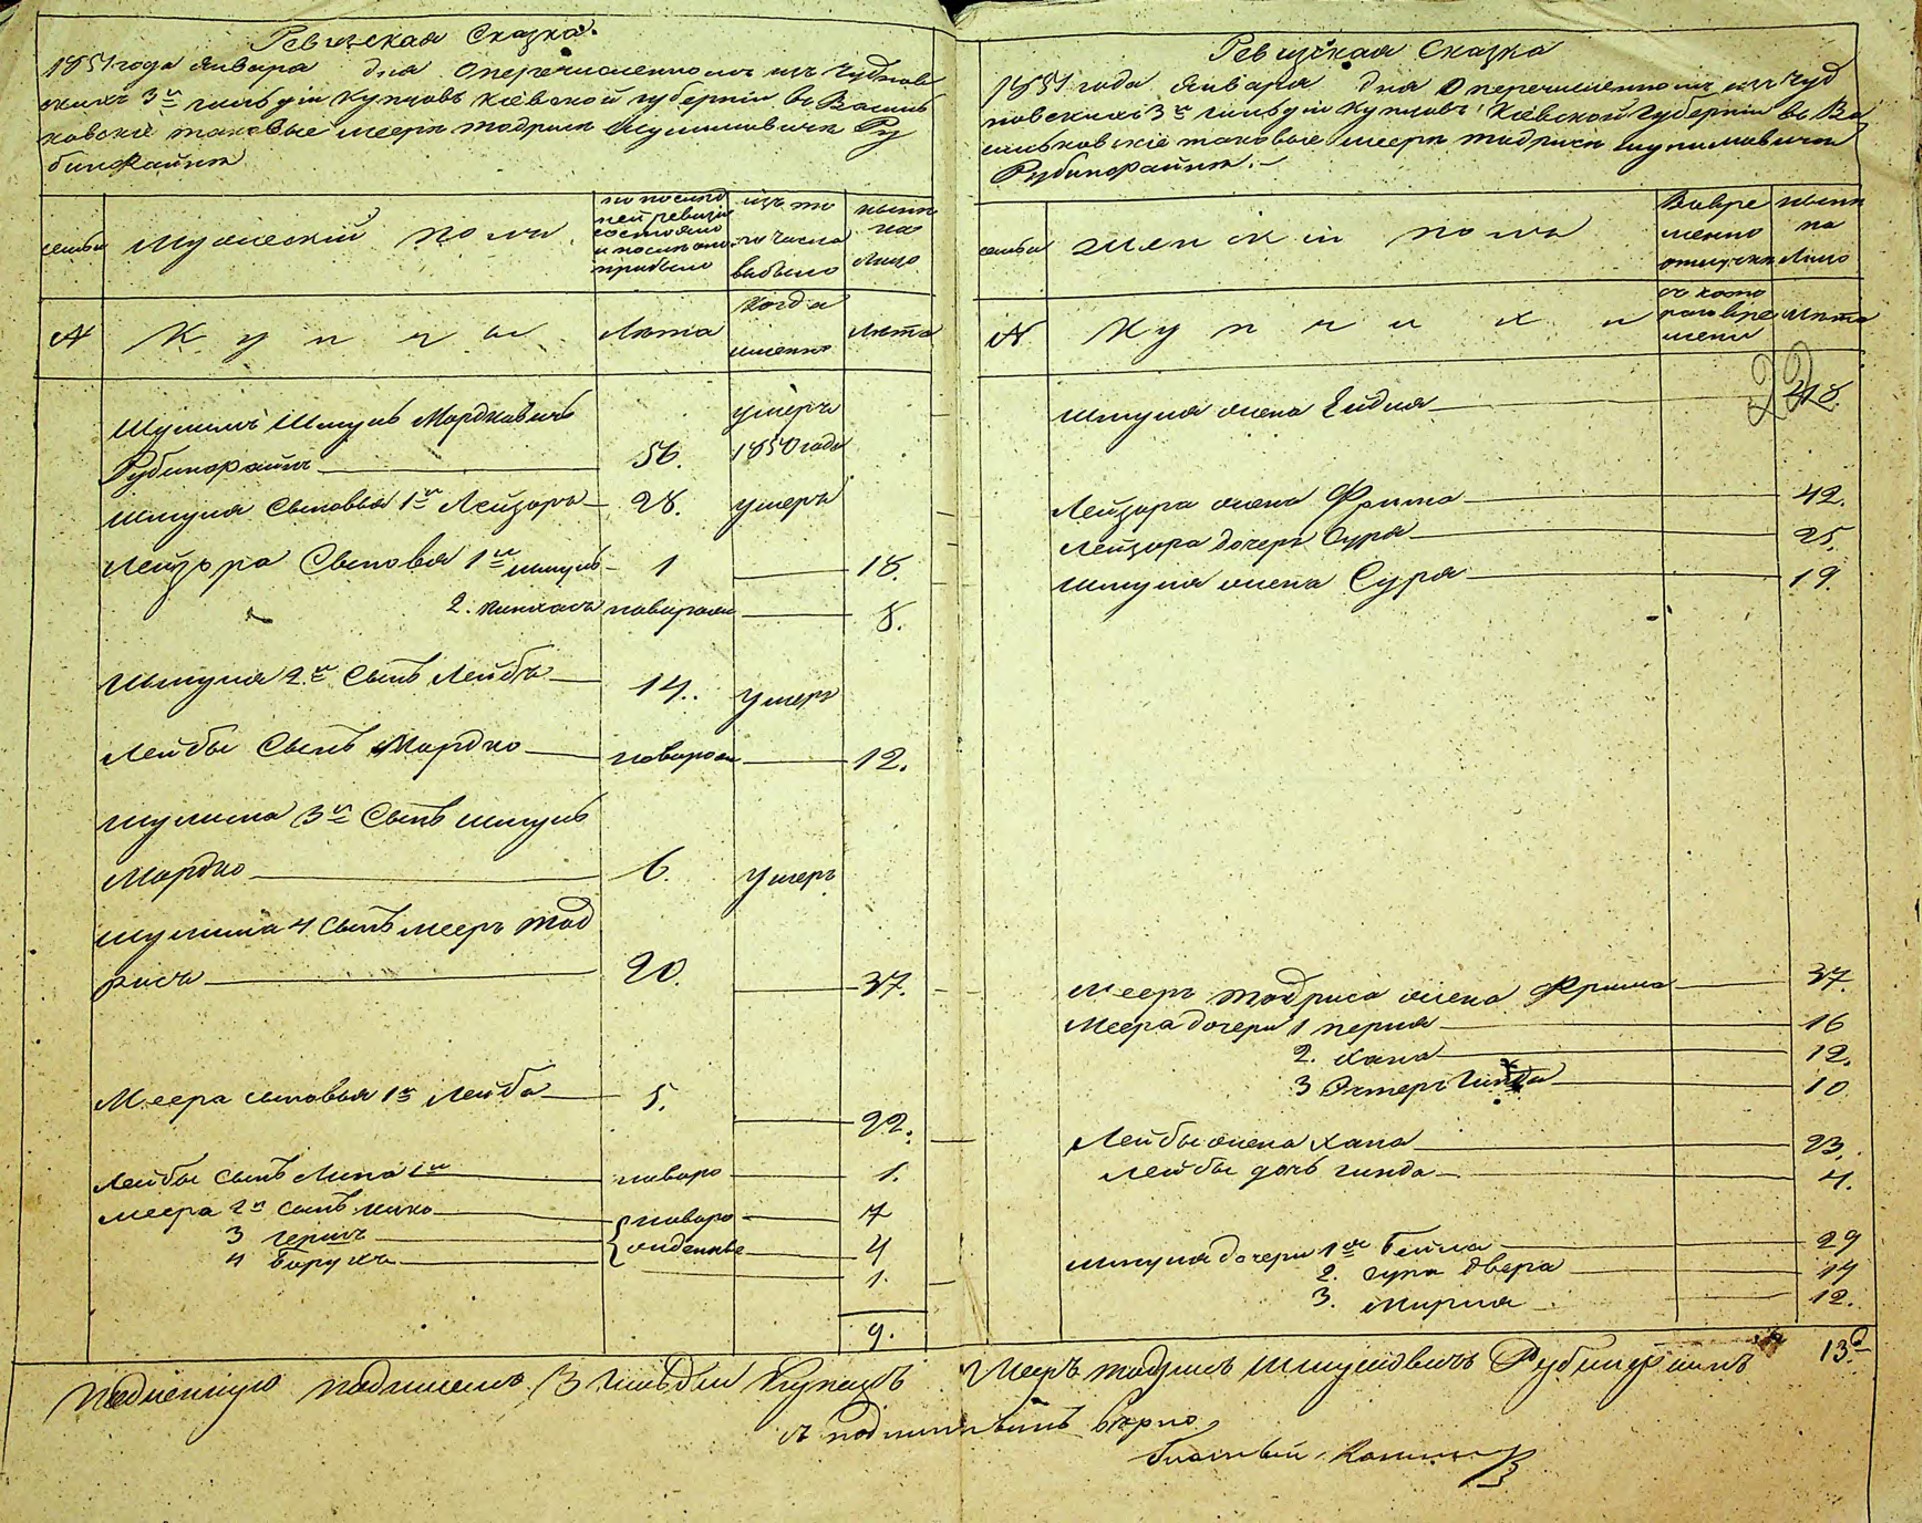 Ревизская Сказка.
1851 года Января дня О перечисленномъ изъ Чуднов
скихъ 3й гильдіи Купцовъ Кіевской губерніи въ Василь
ковскіе таковые Меерѣ Тодрисѣ Шулимовичѣ Ру
бинфайнѣ
семьи
Мужескій полъ
по послѣд
ней ревизіи
состояло
и послѣ оной
прибыло
изъ то
го числа
выбыло
нынѣ
на
лицо
№
Купцы
Лѣта
Когда
именно
Лѣта
Шулимъ Шмуль Мордковичъ умеръ
Рубинфайнъ 56. 1850 года
Шмуля Сыновья 1й Лейзоръ 28. умеръ
Лейзора Сыновья 1й Шмуль 1 18.
2. Пинхасъ новорож 8.
Шмуля 2й Сынъ Лейбъ 14. умеръ
Лейбы Сынъ Мордко новорож 12.
Шулима 3й Сынъ Шмуль
Мордко 6. умеръ
Шулима 4 Сынъ Мееръ Тод
рисъ 20. 37.
Меера сыновья 1й Лейба 5. 22.
Лейбы сынъ Липа 1й новоро 1.
Меера 2й сынъ 7
3 Гершъ новоро 4
4 Борухъ жденные 1.
9.
Ревизская Сказка
1851 года Января дня О перечисленномъ изъ Чуд
новскихъ 3й гильдіи Купцовъ Кіевской Губерніи въ Ва
сильковскіе таковые Меерѣ Тодрисѣ Шулимовичѣ
Рубинфайнѣ.
семьи
Женскій полъ
Во вре
менно
отлучкѣ
нынѣ
на
лицо
№
Купчихи
съ кото
раго вре
мени
Лѣта
22
Шмуля жена Ейдля 48.
Лейзора жена Фрима 42.
Лейзора дочерь Сура 25.
Шмуля жена Сура 19.
Мееръ Тодриса жена Фрима 37.
Меера дочери 1 Перля 16
2. Хана 12.
3 Эстеръ Гинда 10
Лейбы жена Хана 23.
Лейбы дочь Гинда 4.
Шмуля дочери 1я Бейла 29
2. Сура Двера 14
3. Мирля 12.
13.
подписалъ 3 гильдіи Купецъ Мееръ Тодрисъ Шмулевичъ Рубинфайнъ
съ подлиннымъ вѣрно
Гласный